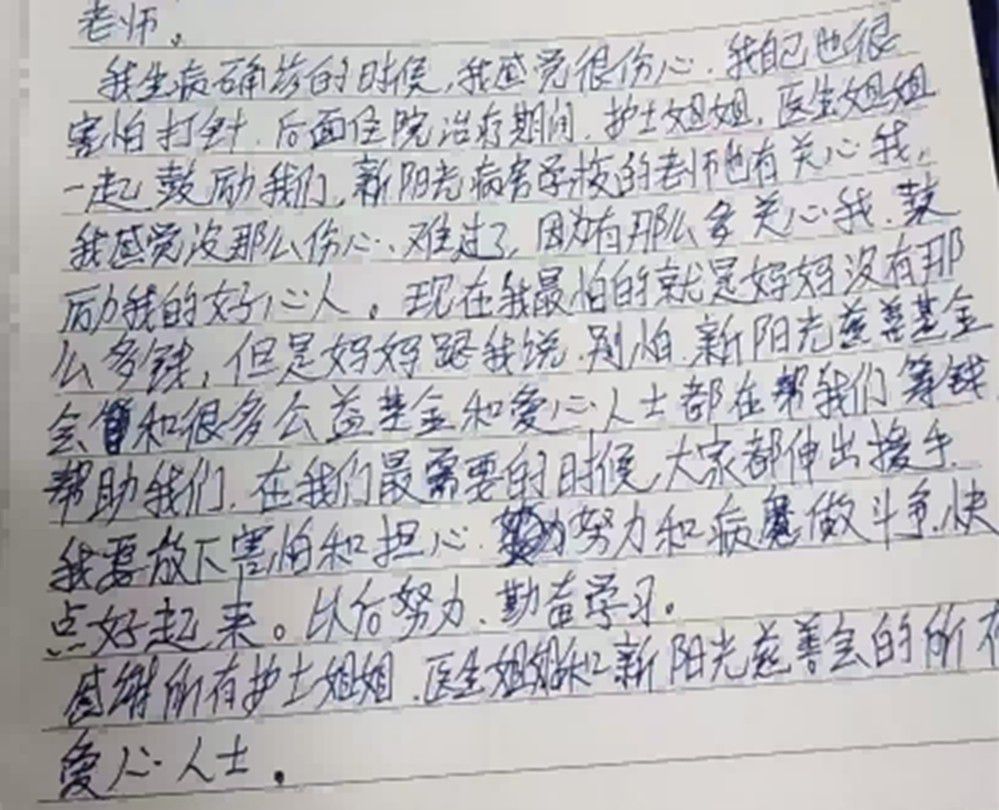 老师。
我生病确诊的时候,我感觉很伤心.我自己也很
害怕打针.后面住院治疗期间.护士姐姐.医生姐姐
一起鼓励我们,新阳光病房学校的老师也有关心我,
我感觉没那么伤心.难过了,因为有那么多关心我.鼓
励我的好心人。现在我最怕的就是妈妈没有那
么多钱,但是妈妈跟我说.别怕.新阳光慈善基金
会和很多公益基金和爱心人士都在帮我们筹钱
帮助我们.在我们最需要的时候,大家都伸出援手.
我要放下害怕和担心.努力和病魔做斗争.快
点好起来。以后努力、勤奋学习。
感谢所有护士姐姐.医生姐姐和新阳光慈善会的所有
爱心人士.